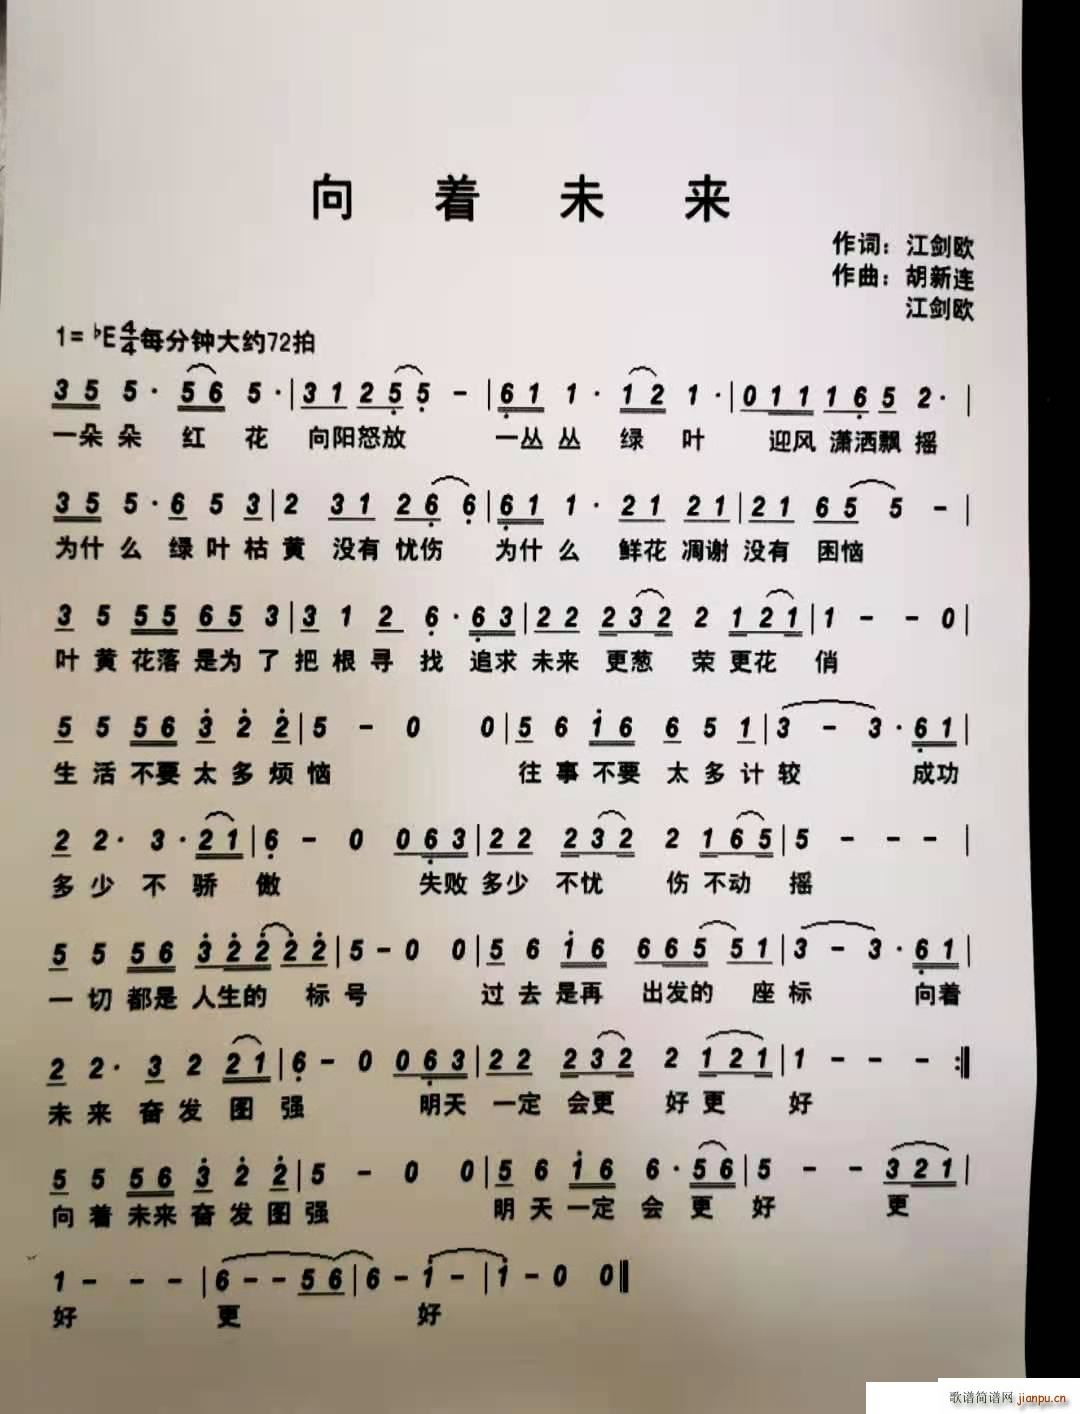 向着未来
作词：江剑欧
作曲：胡新连
江剑欧
1=♭E 4/4 每分钟大约72拍
3 5 5· 5 6 5·|3 1 2 5 5 -|6 1 1· 1 2 1·|0 1 1 1 6 5 2·|
一朵朵 红花 向阳怒放 一丛丛 绿叶 迎风潇洒飘摇
3 5 5· 6 5 3|2 3 1 2 6 6|6 1 1· 2 1 2 1|2 1 6 5 5 -|
为什么 绿叶枯黄 没有忧伤 为什么 鲜花凋谢没有困恼
3 5 5 5 6 5 3|3 1 2 6· 6 3|2 2 2 3 2 2 1 2 1|1 - - 0|
叶黄花落是为了把根寻找 追求未来 更葱 荣更花 俏
5 5 5 6 3 2 2|5 - 0 0|5 6 1 6 6 5 1|3 - 3· 6 1|
生活不要太多烦恼 往事不要太多计较 成功
2 2· 3· 2 1|6 - 0 0 6 3|2 2 2 3 2 2 1 6 5|5 - - -|
多少不骄傲 失败多少 不忧 伤不动摇
5 5 5 6 3 2 2 2 2|5 - 0 0|5 6 1 6 6 6 5 5 1|3 - 3· 6 1|
一切都是人生的 标号 过去是再 出发的 座标 向着
2 2· 3 2 2 1|6 - 0 0 6 3|2 2 2 3 2 2 1 2 1|1 - - -:|
未来奋发图强 明天一定会更 好更 好
5 5 5 6 3 2 2|5 - 0 0|5 6 1 6 6· 5 6|5 - - 3 2 1|
向着未来奋发图强 明天一定会更好 更
1 - - -|6 - - 5 6|6 - 1 -|1 - 0 0‖
好 更 好
歌谱简谱网
jianpu.cn